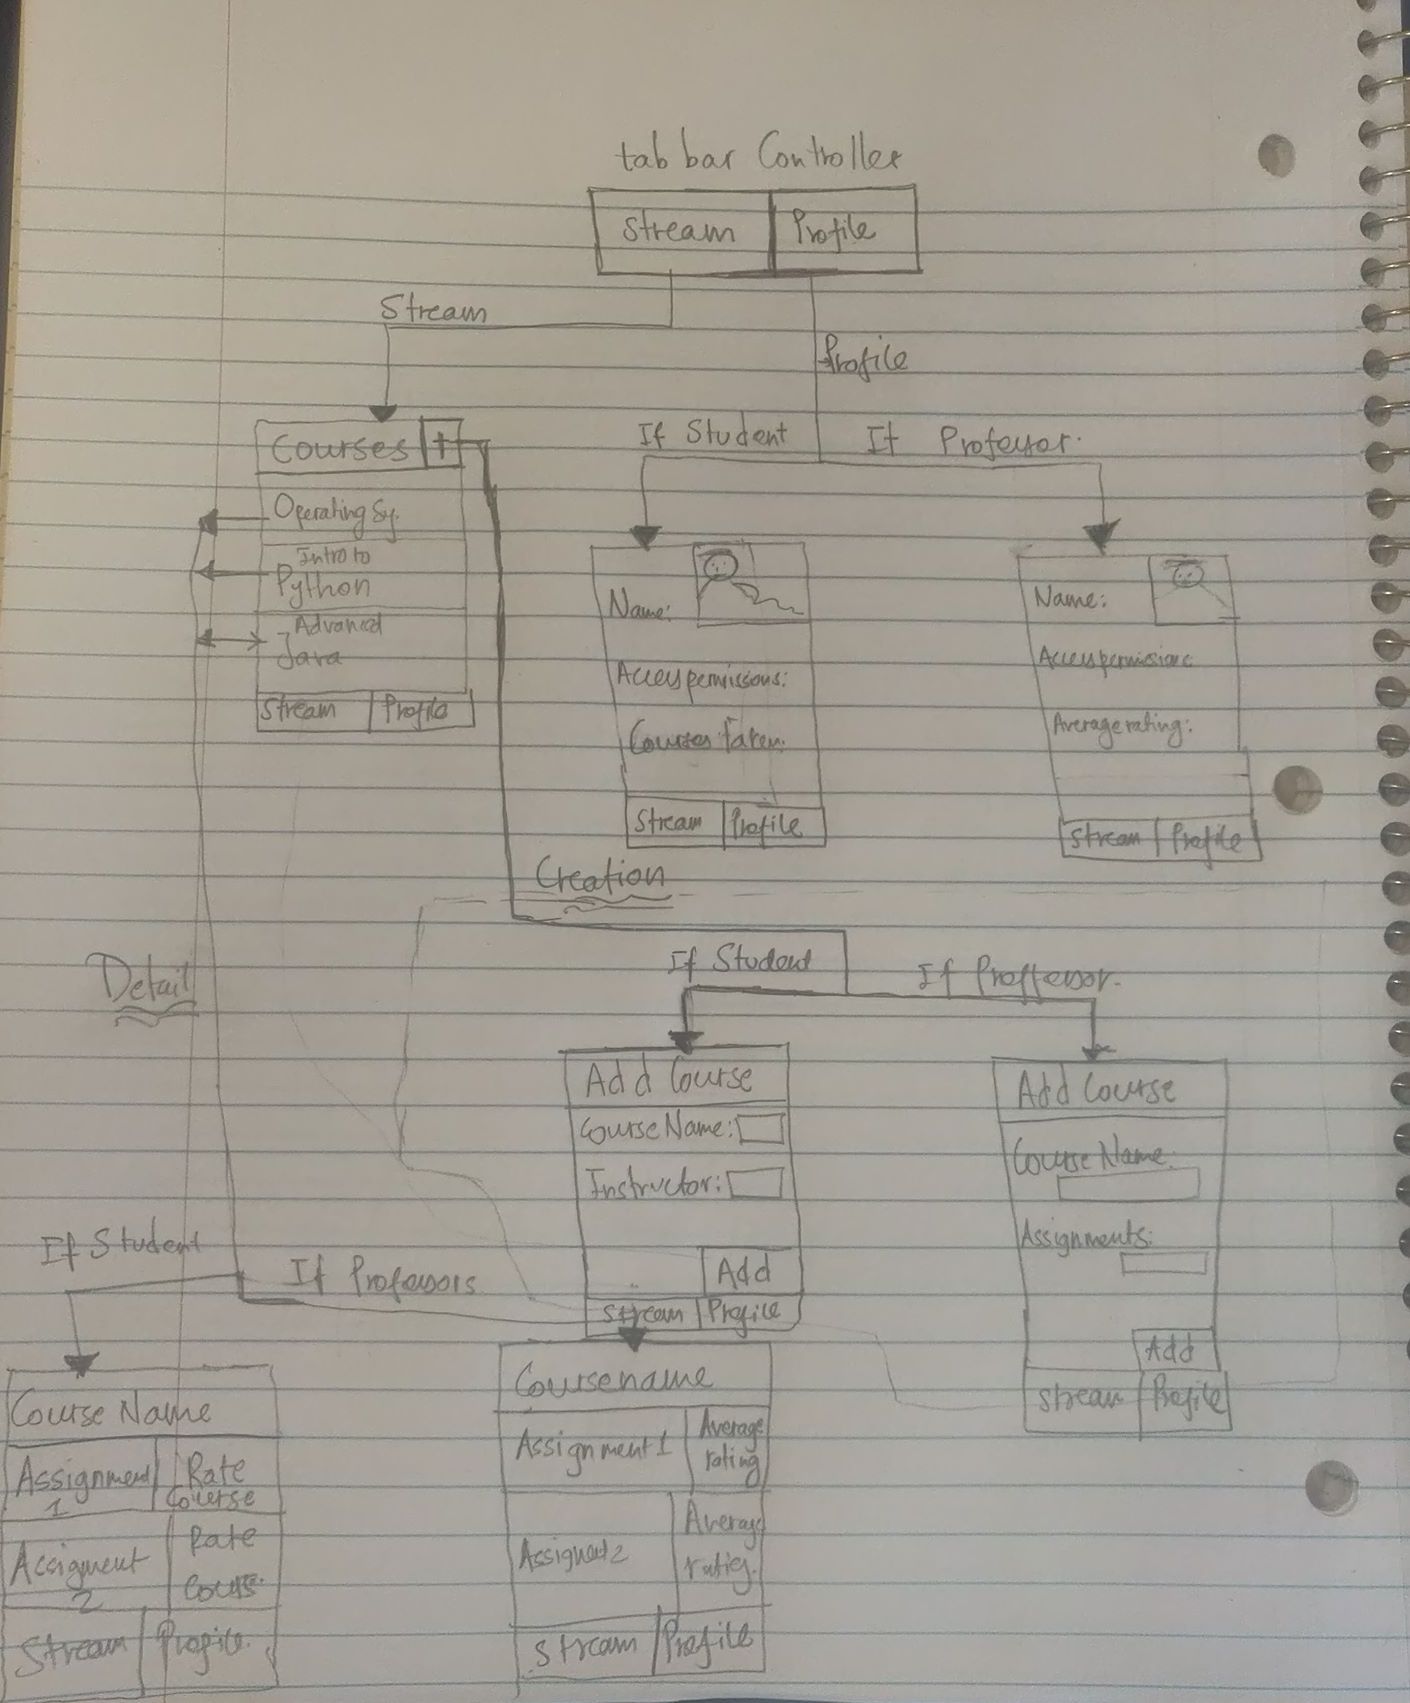 tab bar Controller
Stream Profile
Stream
Profile
If Student If Professor.
Courses +
Operating Sy.
Intro to
Python
Advanced
Java
Stream Profile
Name:
Access permissions:
Courses Taken:
Stream Profile
Name:
Access permissions:
Average rating:
Stream Profile
Creation
Detail
If Student If Proffessor.
Add Course
Course Name:
Instructor:
Add
Stream Profile
Add Course
Course Name:
Assignments:
Add
Stream Profile
If Student If Professors
Course Name
Assignment Rate
1 Course
Assigment Rate
2 Cours.
Stream Profile
Coursename
Assignment 1 Average
rating
2 Average
Stream Profile